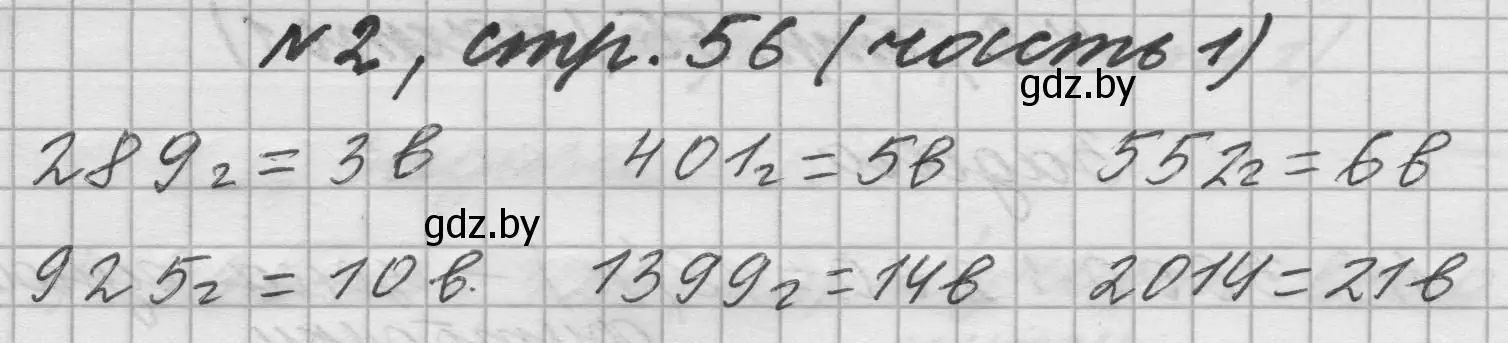 №2, стр. 56 (часть 1)
gdz.by
289г = 3в 401г = 5в 552г = 6в
gdz.by
925г = 10в. 1399г = 14в 2014 = 21в